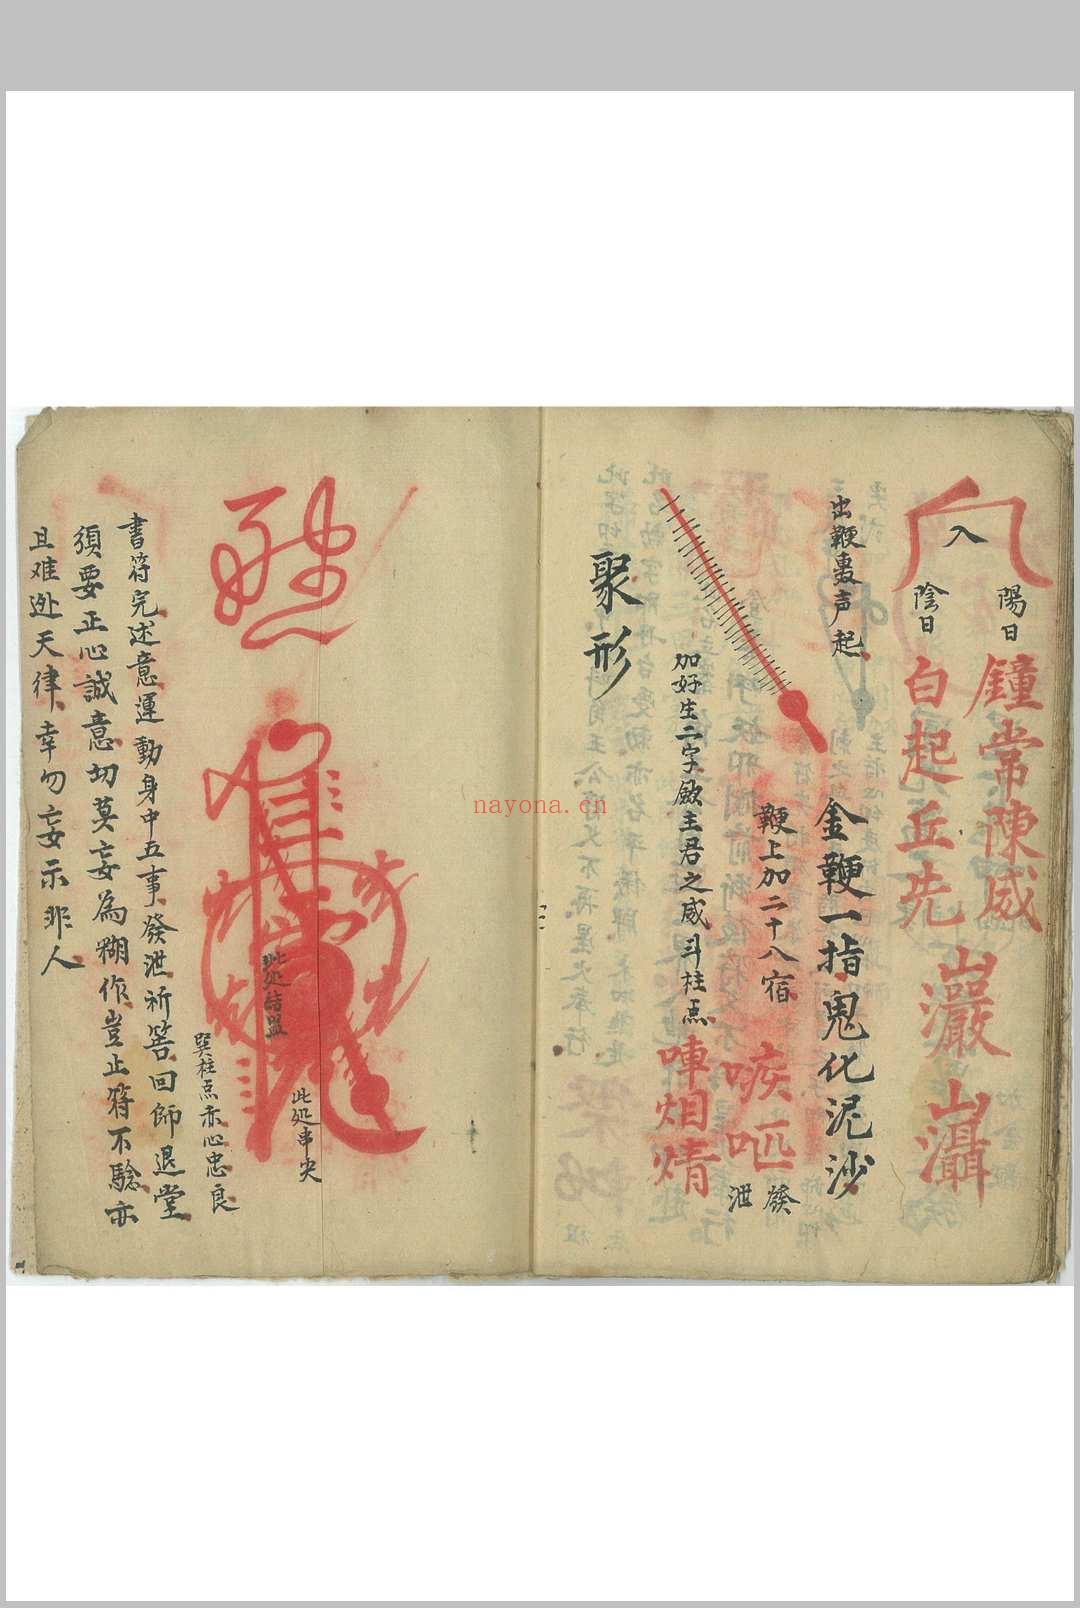 入
陽日
鐘常陳威
陰日
白起丘先
出鞭轰声起
金鞭一指鬼化泥沙
鞭上加二十八宿
發泄
加好生二字敛主君之威斗柱点
聚形
此处結罡
此处串夹
巽柱点赤心忠良
書符完述意運動身中五事發泄祈筶回師退堂
須要正心誠意切莫妄為糊作豈止符不騐亦
且难迯天律幸勿妄示非人
nayona.cn